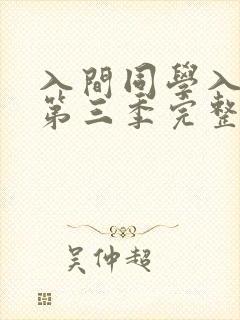 入間同學入
第三季完整
吳仲超